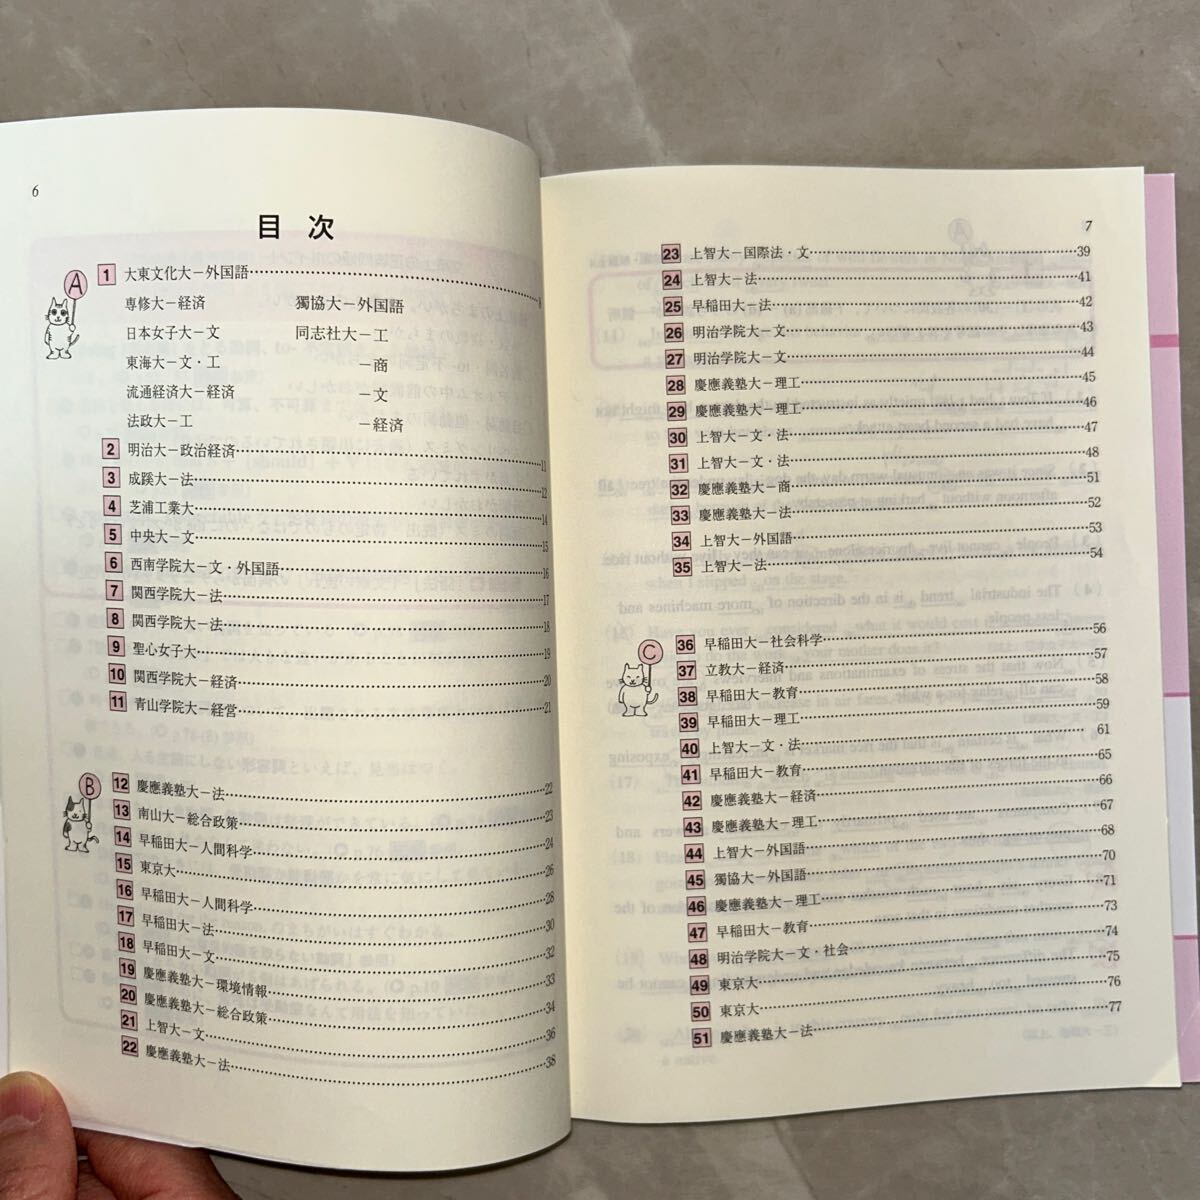 6
目 次
A
1 大東文化大－外国語 8
専修大－経済 獨協大－外国語
日本女子大－文 同志社大－工
東海大－文・工 －商
流通経済大－経済 －文
法政大－工 －経済
2 明治大－政治経済 11
3 成蹊大－法 12
4 芝浦工業大 14
5 中央大－文 15
6 西南学院大－文・外国語 16
7 関西学院大－法 17
8 関西学院大－法 18
9 聖心女子大 19
10 関西学院大－経済 20
11 青山学院大－経営 21
B
12 慶應義塾大－法 22
13 南山大－総合政策 23
14 早稲田大－人間科学 24
15 東京大 26
16 早稲田大－人間科学 28
17 早稲田大－法 30
18 早稲田大－文 32
19 慶應義塾大－環境情報 33
20 慶應義塾大－総合政策 34
21 上智大－文 36
22 慶應義塾大－法 38
7
23 上智大－国際法・文 39
24 上智大－法 41
25 早稲田大－法 42
26 明治学院大－文 43
27 明治学院大－文 44
28 慶應義塾大－理工 45
29 慶應義塾大－理工 46
30 上智大－文・法 47
31 上智大－文・法 48
32 慶應義塾大－商 51
33 慶應義塾大－法 52
34 上智大－外国語 53
35 上智大－法 54
C
36 早稲田大－社会科学 56
37 立教大－経済 57
38 早稲田大－教育 58
39 早稲田大－理工 59
40 上智大－文・法 61
41 早稲田大－教育 65
42 慶應義塾大－経済 66
43 慶應義塾大－理工 67
44 上智大－外国語 68
45 獨協大－外国語 70
46 慶應義塾大－理工 71
47 早稲田大－教育 73
48 明治学院大－文・社会 74
49 東京大 75
50 東京大 76
51 慶應義塾大－法 77